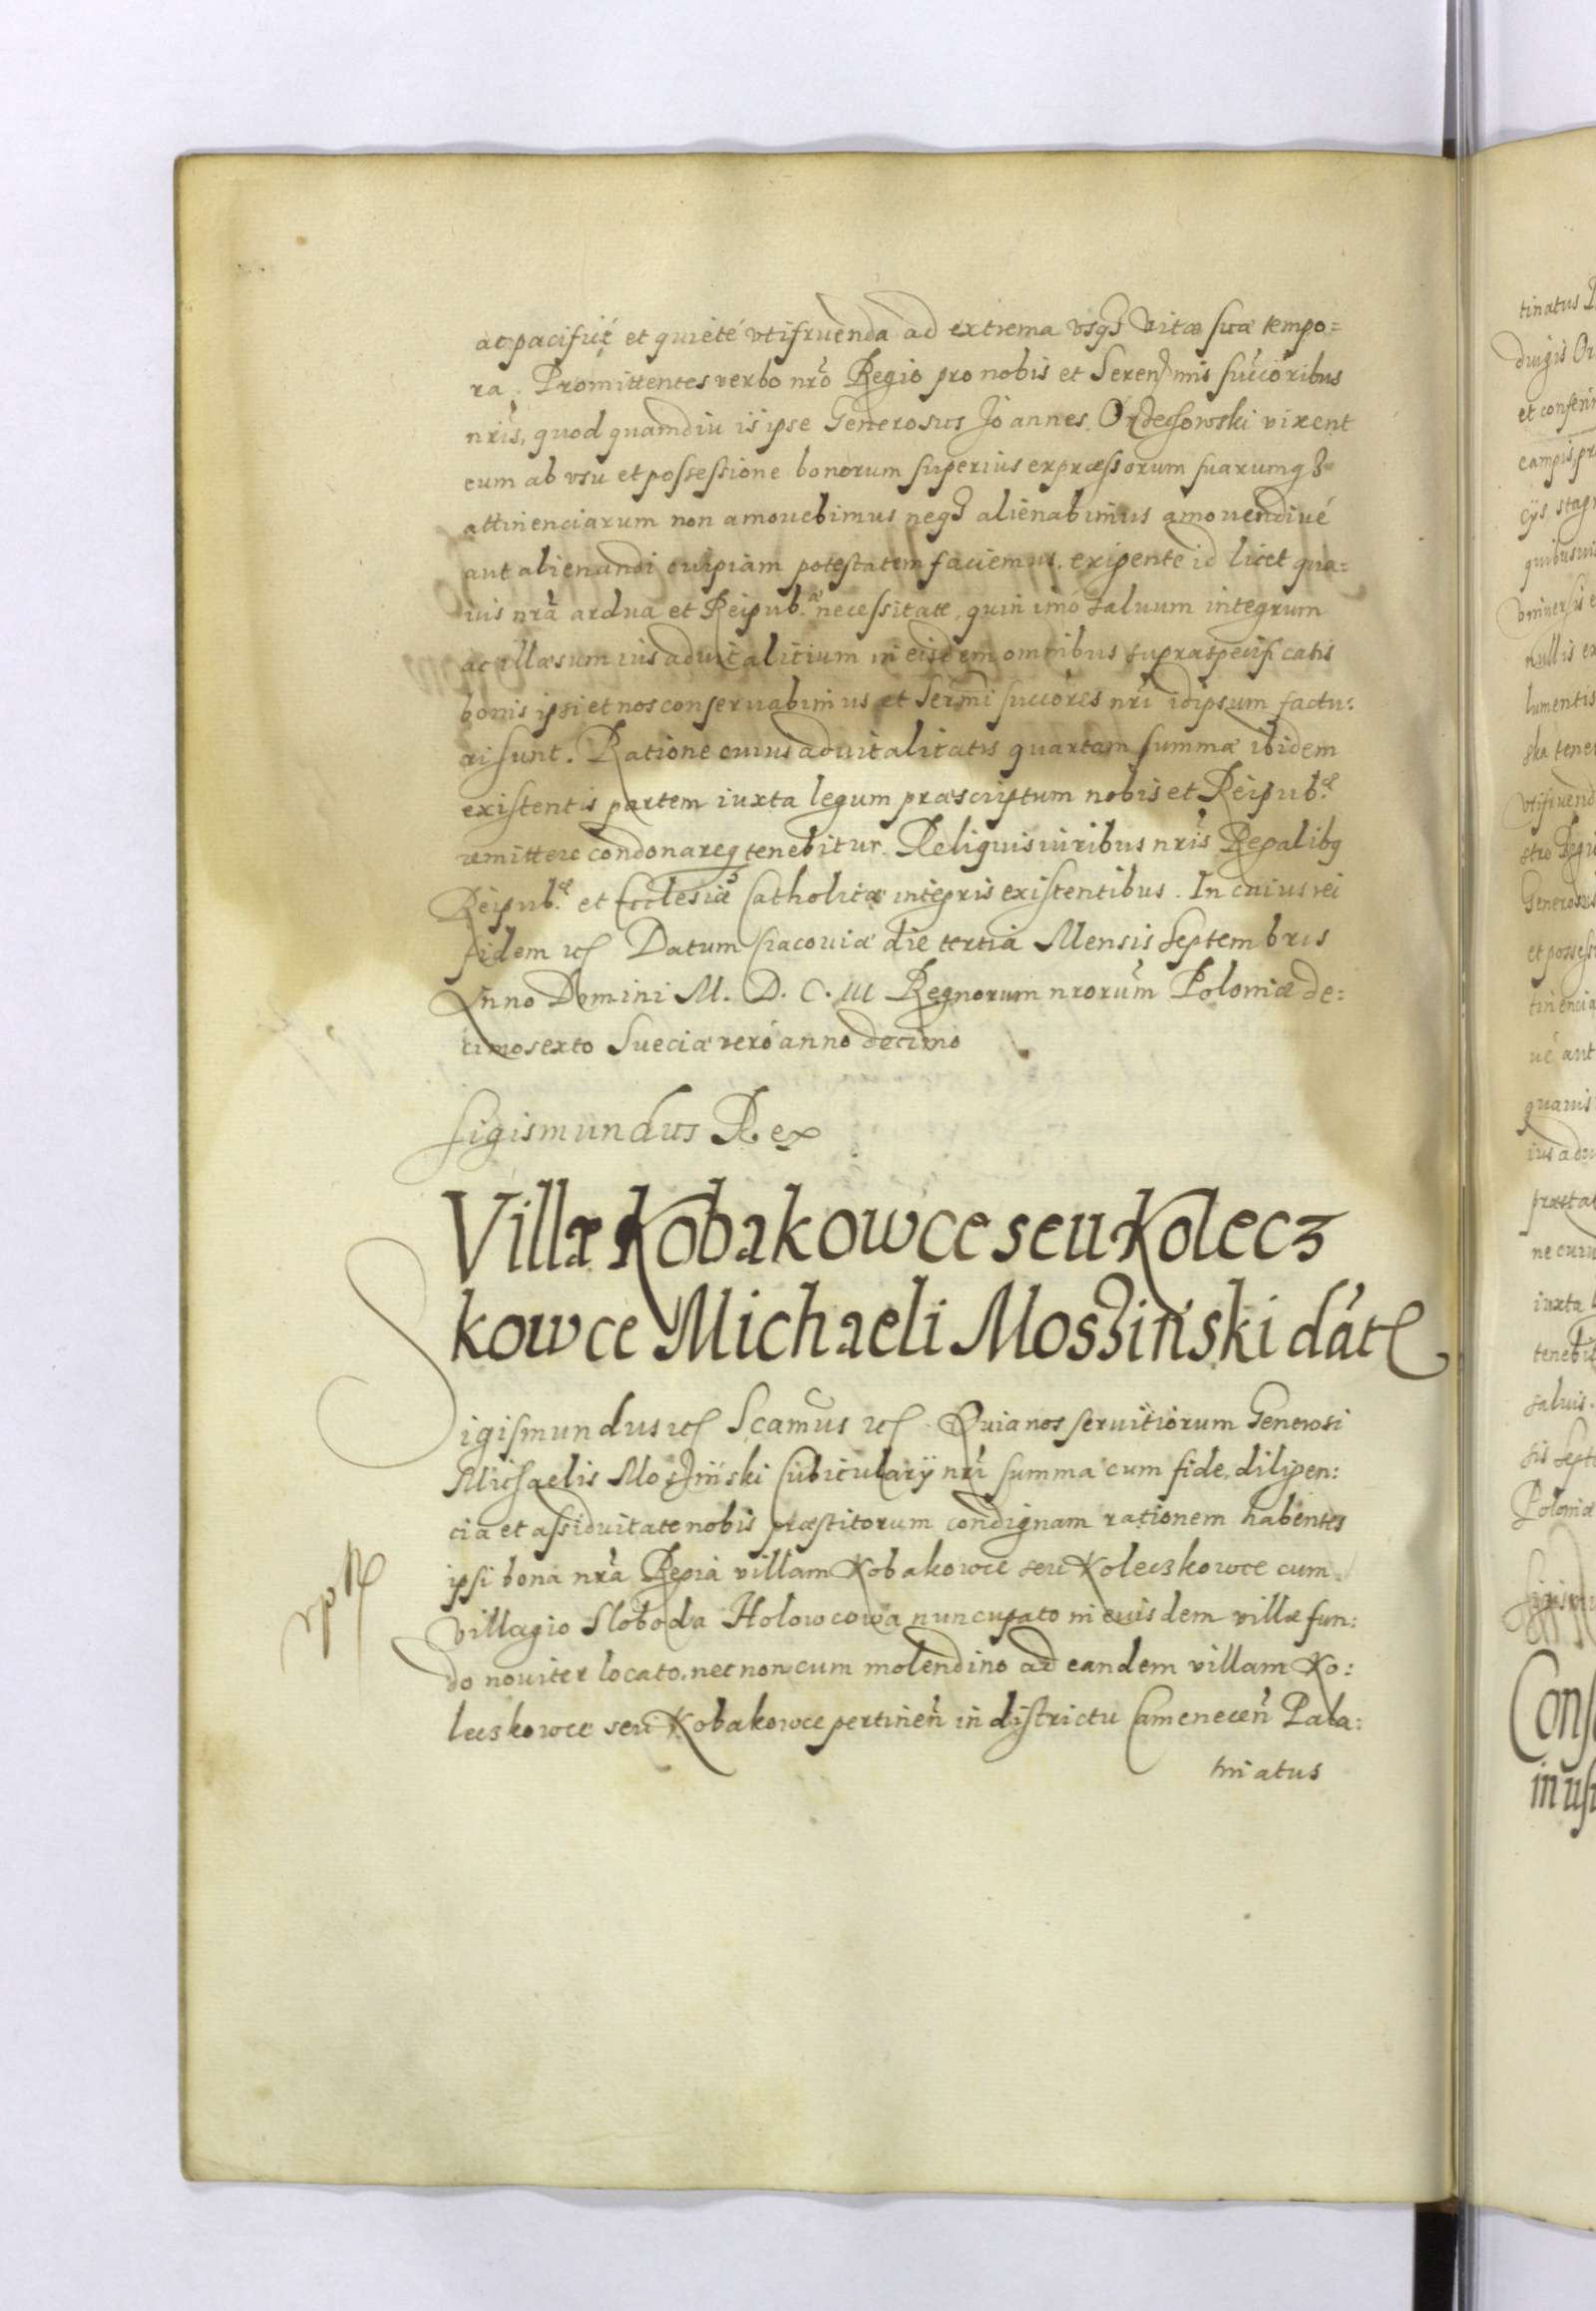 ac pacificé et quieté vtifruenda ad extrema vsq₃ vitæ suæ tempo=
ra. Promittentes verbo nr̃o Regio pro nobis et Seren₃mis succ̃oribus
nr̃is, quod quamdiu is ipse Generosus Joannes Ordessowski vixerit
eum ab vsu et possessione bonorum superius expræssorum suarumq₃
attinenciarum non amouebimus neq₃ alienabimus amouendiué
aut alienandi cuipiam potestatem faciemus. exigente id licet qua=
uis nr̃a ardua et Reipub.æ necessitate, quin imó saluum integrum
ac illæsum ius aduitalitium in eisdem omnibus supraspecificatis
bonis ipsi et nos conseruabimus et Ser̃mi succ̃ores nr̃i idipsum factu:
ri sunt. Ratione cuius aduitalitatis quartam summæ ibidem
existentis partem iuxta legum præscriptum nobis et Reipub.æ
remittere condonareq₃ tenebitur. Reliquis iuribus nr̃is Regalibq
Reipub.æ et Ecclesiæ Catholicæ integris existentibus. In cuius rei
fidem etc Datum Cracouiæ die tertia Mensis Septembris
Anno Domini M. D. C. III Regnorum nr̃orum Poloniæ de:
cimosexto Sueciæ veró anno decimo
Sigismundus Rex
Villæ Kobakowce seu Kolecz
kowce Michaeli Mosziński dát̃
Sigismundus etc Sc̃amus etc Quia nos seruitiorum Generosi
Michaelis Mosziński Cubicularÿ nr̃i summa cum fide, diligen:
cia et assiduitate nobis præstitorum condignam rationem habentes
ipsi bona nr̃a Regia villam Kobakowce seu Koleczkowce cum
villagio Sloboda Holowcowa nuncupato in euisdem villæ fun:
do nouiter locato, necnon cum molendino ad eandem villam Ko:
leczkowce seu Kobakowce pertineñ in districtu Cameneceñ Pala:
tinatus